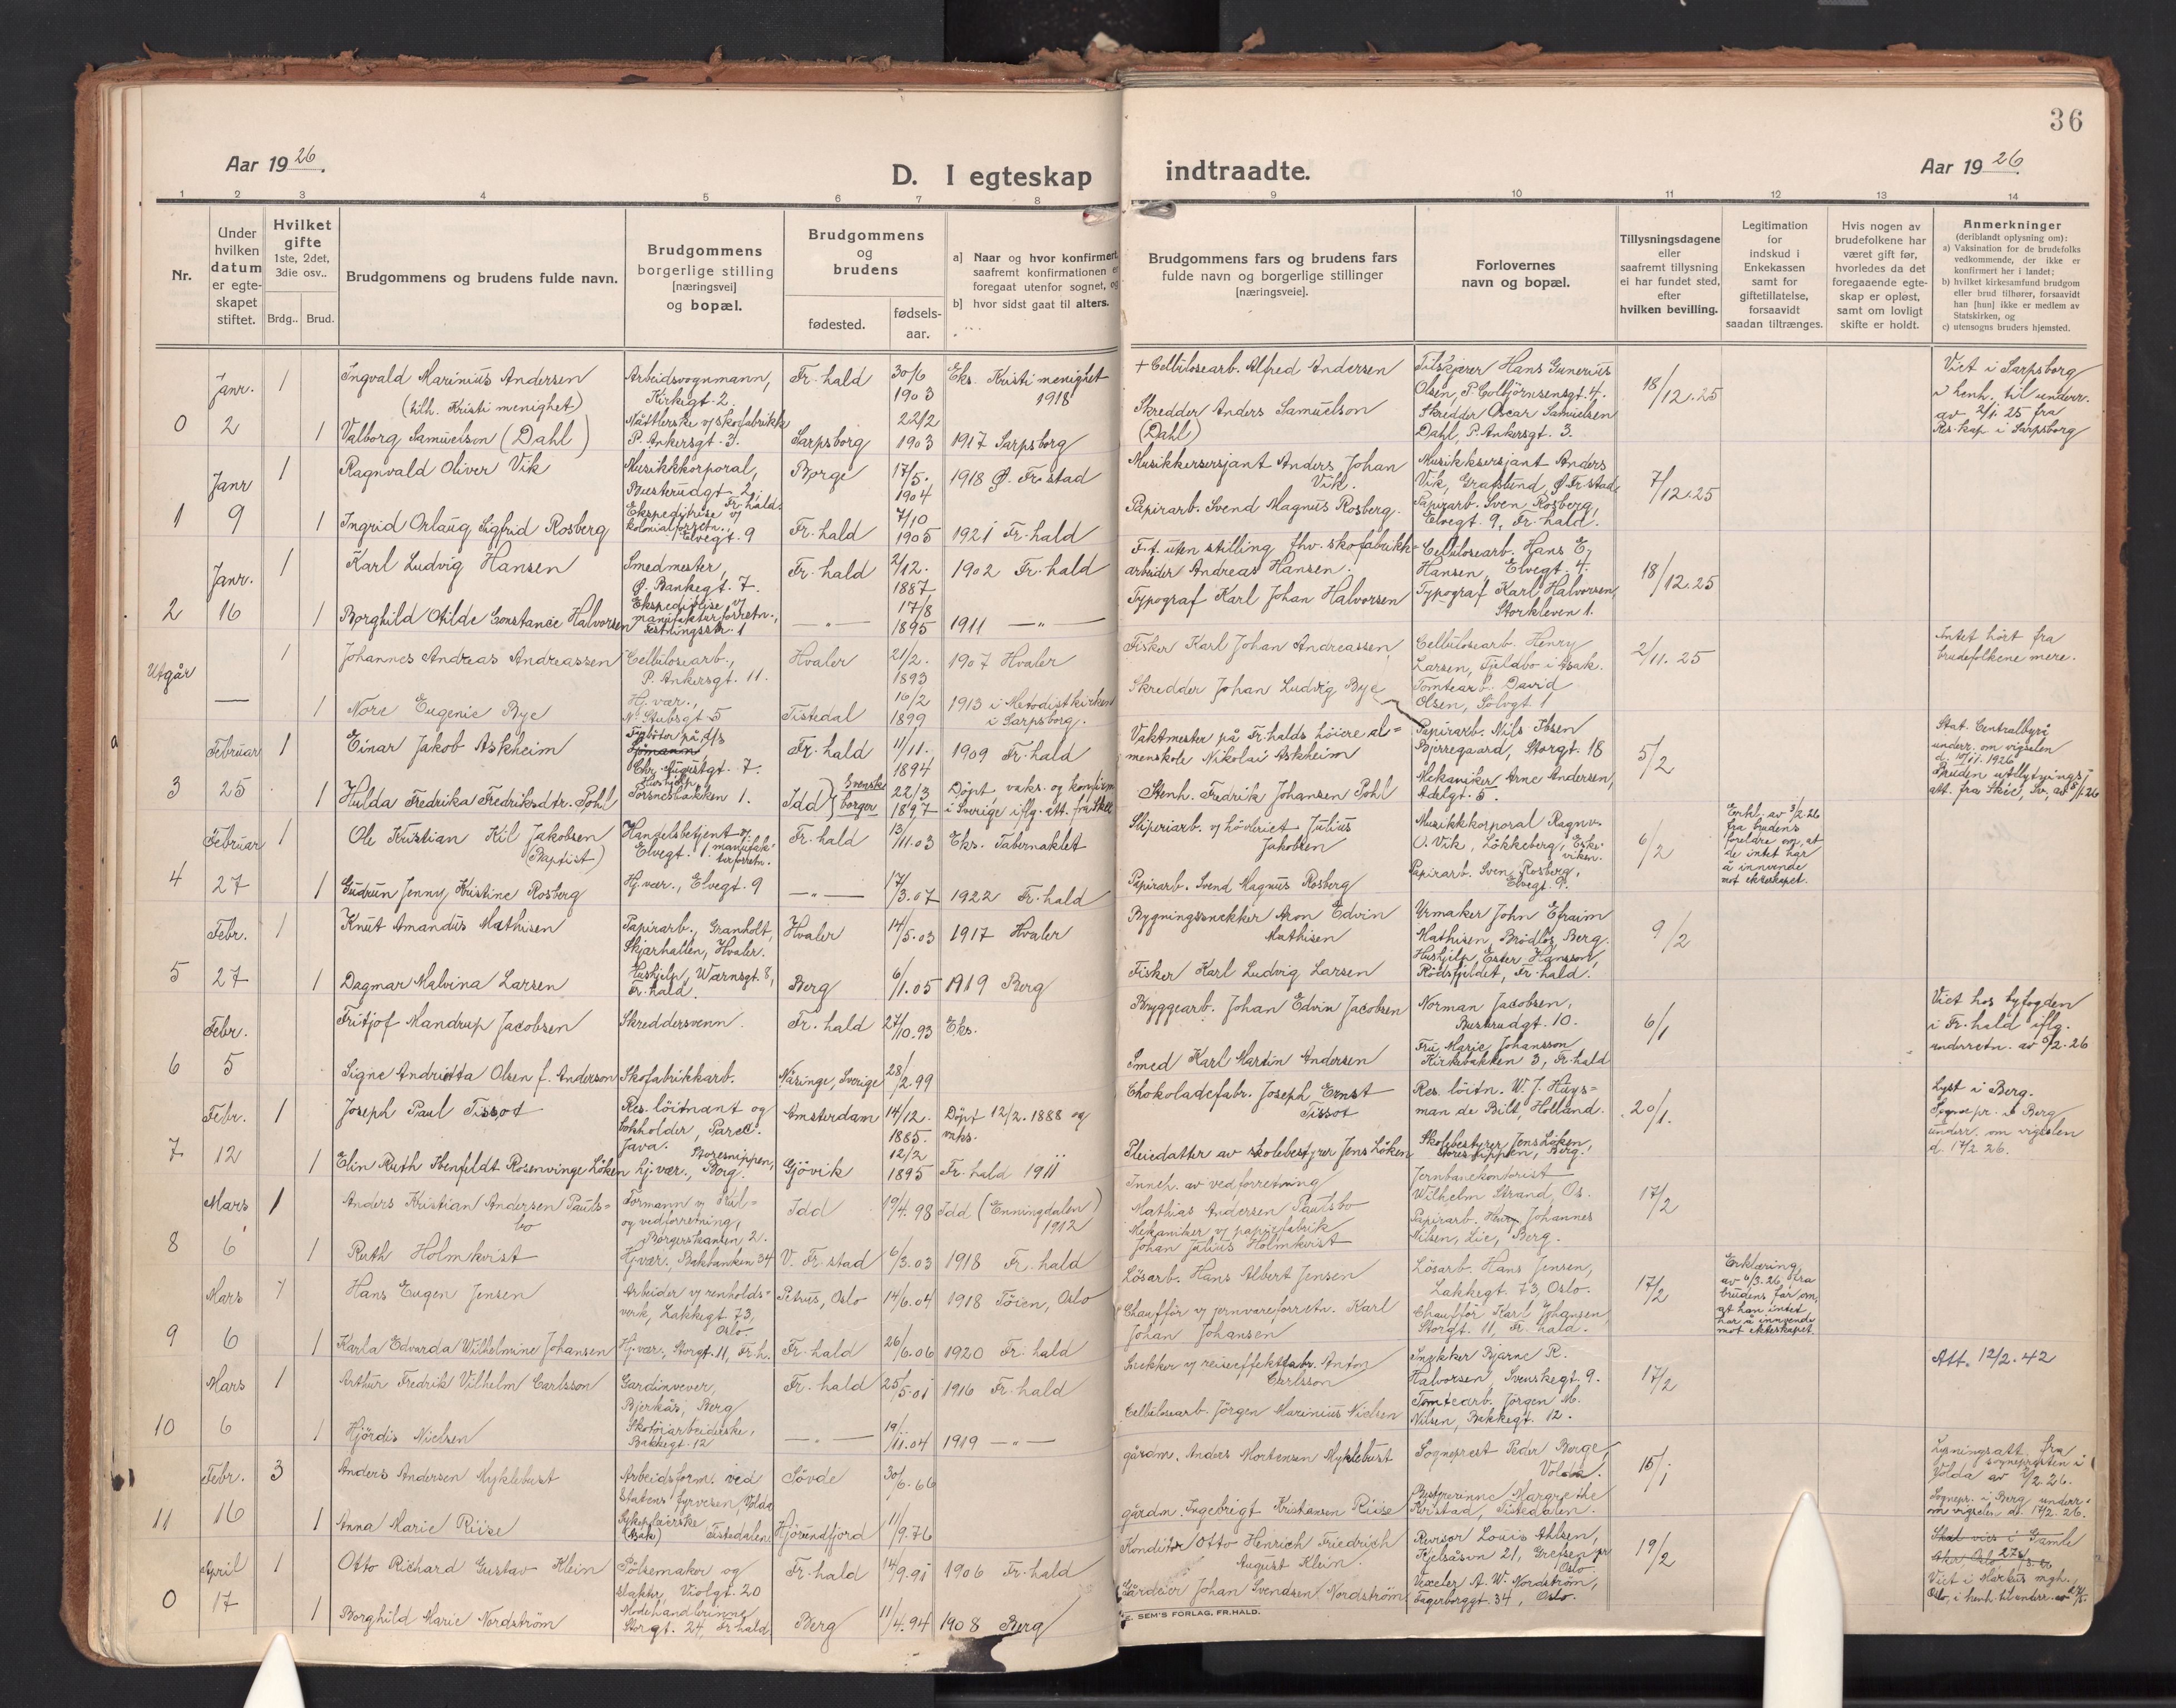 36
Aar 1926.
D. I egteskap indtraadte.
Aar 1926.
1 2 3 4 5 6 7 8 9 10 11 12 13 14
Nr.
Under hvilken datum er egte-skapet stiftet.
Hvilket gifte 1ste, 2det, 3die osv..
Brdg.. Brud.
Brudgommens og brudens fulde navn.
Brudgommens borgerlige stilling [næringsvei] og bopæl.
Brudgommens og brudens
fødested.
fødsels-aar.
a] Naar og hvor konfirmert, saafremt konfirmationen er foregaat utenfor sognet, og
b] hvor sidst gaat til alters.
Brudgommens fars og brudens fars fulde navn og borgerlige stillinger [næringsveie].
Forlovernes navn og bopæl.
Tillysningsdagene eller saafremt tillysning ei har fundet sted, efter hvilken bevilling.
Legitimation for indskud i Enkekassen samt for giftetillatelse, forsaavidt saadan tiltrænges.
Hvis nogen av brudefolkene har været gift før, hvorledes da det foregaaende egte-skap er opløst, samt om lovligt skifte er holdt.
Anmerkninger
(deriblandt oplysning om):
a) Vaksination for de brudefolks vedkommende, der ikke er konfirmert her i landet;
b) hvilket kirkesamfund brudgom eller brud tilhører, forsaavidt han [hun] ikke er medlem av Statskirken, og
c) utensogns bruders hjemsted.
0 Janr. 2
1 Ingvald Marinius Andersen (tilh. Kristi menighet) Arbeidsvognmann, Kirkegt. 2 Fr.hald 30/6 1903 Eks. Kristi menighet 1918 + Cellulosearb. Alfred Andersen Filskjærer Hans Gunerius Olsen, P. Colbjörnsensgt. 4. 18/12.25 Viet i Sarpsborg i henh. til underr. av 2/1. 25 fra Res. kap i Sarpsborg
1 Valborg Samuelson (Dahl) Nåtlerske v/ skofabrikk P. Ankersgt. 3. Sarpsborg 22/2 1903 1917 Sarpsborg Skredder Anders Samuelson (Dahl) Skredder Oscar Samuelsen Dahl, P. Ankersgt. 3.
1 Janr 9
1 Ragnvald Oliver Vik Musikkkorporal, Busterudgt. 2, Fr.hald. Borge 17/5. 1904 1918 Ø. Fr.stad Musikkersersjant Anders Johan Vik. Musikksersjant Anders Vik, Ø. Fr.stad 7/12.25
1 Ingrid Orlaug Sigfrid Rosberg Ekspeditrise v/ kolonialforretn., Elvegt. 9 Fr.hald 7/10 1905 1921 Fr.hald Papirarb. Svend Magnus Rosberg. Papirarb. Sven Rosberg, Elvegt. 9, Fr.hald.
2 Janr. 16
1 Karl Ludvig Hansen Smedmester, Ø. Bankegt. 7. Fr.hald 2/12. 1887 1902 Fr.hald F.t. uten stilling, fhv. skofabrikk=arbeider Andreas Hansen. Cellulosearb. Hans E. Hansen, Elvegt. 4. 18/12.25
1 Borghild Otilde Constance Halvorsen Ekspeditrise v/ manufakturforretn., Festningsstr. 1 — " — 17/8 1895 1911 — " — Typograf Karl Johan Halvorsen Typograf Karl Halvorsen, Storkleven 1.
Utgår —
1 Johannes Andreas Andreassen Cellulosearb., P. Ankersgt. 11. Hvaler 21/2. 1893 1907 Hvaler Fisker Karl Johan Andreassen, Cellulosearb. Henry Larsen, Fjeldbo i Asak. 2/11. 25 Intet hört fra brudefolkene mere.
1 Nore Eugenie Bye Hj. vær., N. Stubsgt. 5 Tistedal 16/2 1899 1913 i Metodistkirken i Sarpsborg. Skredder Johan Ludvig Bye Tomtearb. David Olsen, Sølvgt 1
3 Februar 25
1 Einar Jakob Askheim Fyrböter på d/s Sjömann Chr. Augustgt. 7. Fr.hald 11/11. 1894 1909 Fr.hald Vaktmester på Fr.halds höiere al=menskole Nikolai Askheim Papirarb. Nils Ibsen Bjerregaard, Storgt. 18 5/2 Stat. Centralbyrå underr. om vigselen d. 10/11. 1926
1 Hulda Fredrika Fredriksdtr. Pohl Hushjelp Torsnesbakken 1. Idd Svenske borger 22/3 1897 Döpt vaks. og konfirm. i Sverige iflg. att. fra Skee Stenh. Fredrik Johansen Pohl Mekaniker Arne Andersen, Adelgt. 5. Bruden utflytnings=att. fra Skee, Sv., av 8/1.26
4 Februar 27
1 Ole Kristian Kil Jakobsen (Baptist) Handelsbetjent v/ manufak=turforretn. Elvegt. 1. Fr.hald 13/11.03 Eks. Tabernaklet Sliperiarb. v/ hövleriet Julius Jakobsen Musikkkorporal Ragnv. O. Vik, Lökkeberg, Eske=viken. 6/2 Erkl. av 3/2 26 fra brudens foreldre om, at de intet har å innvende mot ekteskapet.
1 Gudrun Jenny Kristine Rosberg Hj. vær., Elvegt. 9 — " — 17/3.07 1922 Fr.hald Papirarb. Svend Magnus Rosberg Papirarb. Sven Rosberg, Elvegt. 9.
5 Febr. 27
1 Knut Amandus Mathisen Papirarb., Granholt, Skjærhallen, Hvaler. Hvaler 14/5.03 1917 Hvaler Bygningssnekker Aron Edvin Mathisen Urmaker John Efraim Mathisen, Brödlös, Berg. 9/2
1 Dagmar Malvina Larsen Hushjelp, Wærnsgt. 8, Fr.hald. Berg 6/1.05 1919 Berg Fisker Karl Ludvig Larsen Hushjelp Ester Hansson, Rödsfjeldet, Fr.hald.
6 Febr. 5
Fritjof Mandrup Jacobsen Skreddersvenn. Fr.hald 27/10.93 Eks. Bryggearb. Johan Edvin Jacobsen Norman Jacobsen, Busterudgt. 10. 6/1 Viet hos byfogden i Fr.hald iflg. underretn. av 5/2.26
Signe Andrietta Olsen f. Anderson Skofabrikkarb. Näsinge, Sverige 28/2.99 Smed Karl Martin Andersen Fru Marie Johansson Kirkebakken 3, Fr.hald
7 Febr. 12
1 Joseph Paul Tissot Res. löitnant og bokholder, Java. Amsterdam 14/12. 1885. Döpt 12/2. 1888 og vaks. Chokoladefabr. Joseph Ernst Tissot Res. löitn. W. J. Huys=man de Bilt, Holland. 20/1. Lyst i Berg. Sognepr. i Berg underr. om vigselen d. 17/2 26.
1 Elin Ruth Rosenvinge Löken hj. vær., Berg. Gjövik 12/2 1895 Fr.hald 1911 Pleiedatter av skolebestyrer Jens Löken Skolebestyrer Jens Löken, Berg.
8 Mars 6
1 Anders Kristian Andersen Pauls=bo Formann v/ kul= og vedforretning, Borgerskansen 2. Idd 19/4.98 Idd (Enningdalen) 1912 Inneh. av vedforretning Mathias Andersen Paulsbo Jernbanekontorist Wilhelm Strand, Os. 17/2
1 Ruth Holmkvist Hj. vær., Bakbanken 34 V. Fr.stad 6/3.03 1918 Fr.hald Mekaniker v/ papirfabrik Johan Julius Holmkvist Papirarb. Johannes Nilsen, Lie, Berg.
9 Mars 6
1 Hans Eugen Jensen Arbeider v/ renholds=verk, Lakkegt 73, Oslo. Petrus, Oslo 14/6.04 1918 Töien, Oslo Lösarb. Hans Albert Jensen Lösarb. Hans Jensen, Lakkegt. 73, Oslo. 17/2 Erklæring av 6/3.26 fra brudens far om, at han intet har å innvende mot ekteskapet.
1 Karla Edvarda Wilhelmine Johansen Hj. vær., Storgt. 11, Fr.h. Fr.hald 26/6.06 1920 Fr.hald Chaufför v/ jernvareforretn. Karl Johan Johansen Chaufför Karl Johansen, Storgt. 11, Fr.hald.
10 Mars 6
1 Arthur Fredrik Vilhelm Carlsson Gardinvever, Bjerkås, Berg Fr.hald 25/5.01 1916 Fr.hald Snekker v/ reiseeffektfabr. Anton Carlsson Snekker Bjarne R. Halvorsen, Svenskegt. 9. 17/2 Att. 12/2.42
1 Hjördis Nielsen Skotöiarbeiderske, Bakkegt. 12 — " — 19/11.04 1919 — " — Cellulosearb. Jörgen Marinius Nielsen Tomtearb. Jörgen M. Nilsen, Bakkegt. 12.
11 Febr. 16
3 Anders Andersen Myklebust Arbeidsform. ved statens fyrvesen, Volda Sövde 30/6.66 gårdm. Anders Mortensen Myklebust Sogneprest Peder Berge, Volda. 15/1 Lysningsatt. fra sognepresten i Volda av 2/2.26. Sognepr. i Berg underr. om vigselen d. 17/2.26.
1 Anna Marie Riise Sykepleierske Tistedalen Hjörundfjord 11/9.76 gårdm. Ingebrigt Kristansen Riise Bestyrerinne Margrethe Kvistad, Tistedalen.
0 April 17
1 Otto Richard Gustav Klein Pölsemaker og slakter, Violgt. 20 Fr.hald 14/9.91 1906 Fr.hald Konditor Otto Henrich Friedrich August Klein. Revisor Louis Ahlsen, Kjelsåsvn 21, Grefsen pr Oslo. 19/2 Skal vies i Gamle Aker Oslo Viet i Markus mgh., Oslo, i henh. til underr. av
1 Borghild Marie Nordström Modehandlerinne Storgt. 24, Fr.hald. Berg 11/4.94 1908 Berg Gårdeier Johan Svendsen Nordström Vexeler A. W. Nordström, Fagerborggt. 34, Oslo.
E. SEM'S FORLAG, FR.HALD.